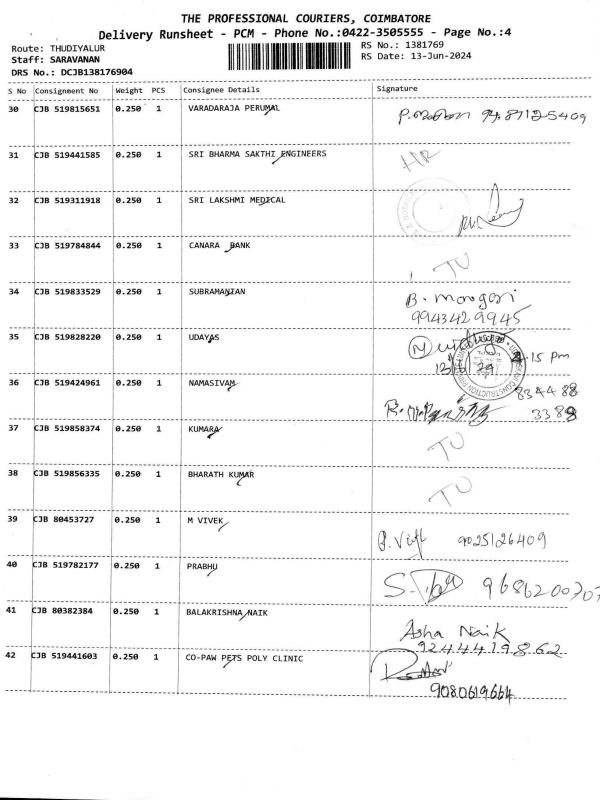 THE PROFESSIONAL COURIERS, COIMBATORE
Delivery Runsheet - PCM - Phone No.:0422-3505555 - Page No.:4
Route: THUDIYALUR
RS No.: 1381769
Staff: SARAVANAN
RS Date: 13-Jun-2024
DRS No.: DCJB138176904
S No Consignment No Weight PCS Consignee Details Signature
30 CJB 519815651 0.250 1 VARADARAJA PERUMAL
31 CJB 519441585 0.250 1 SRI BHARMA SAKTHI ENGINEERS HR
32 CJB 519311918 0.250 1 SRI LAKSHMI MEDICAL
33 CJB 519784844 0.250 1 CANARA BANK TU
34 CJB 519833529 0.250 1 SUBRAMANIAN B.
9943429945
35 CJB 519828220 0.250 1 UDAYAS
15 Pm
36 CJB 519424961 0.250 1 NAMASIVAM 834488
3388
37 CJB 519858374 0.250 1 KUMARA TU
38 CJB 519856335 0.250 1 BHARATH KUMAR TU
39 CJB 80453727 0.250 1 M VIVEK
9025126409
40 CJB 519782177 0.250 1 PRABHU S.
41 CJB 80382384 0.250 1 BALAKRISHNA NAIK Asha Naik
9244419862
42 CJB 519441603 0.250 1 CO-PAW PETS POLY CLINIC
9080619664